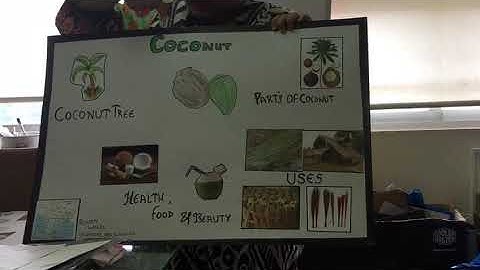 COCONUT
COCONUT TREE
PARTS OF COCONUT
HEALTH,
FOOD & BEAUTY
USES